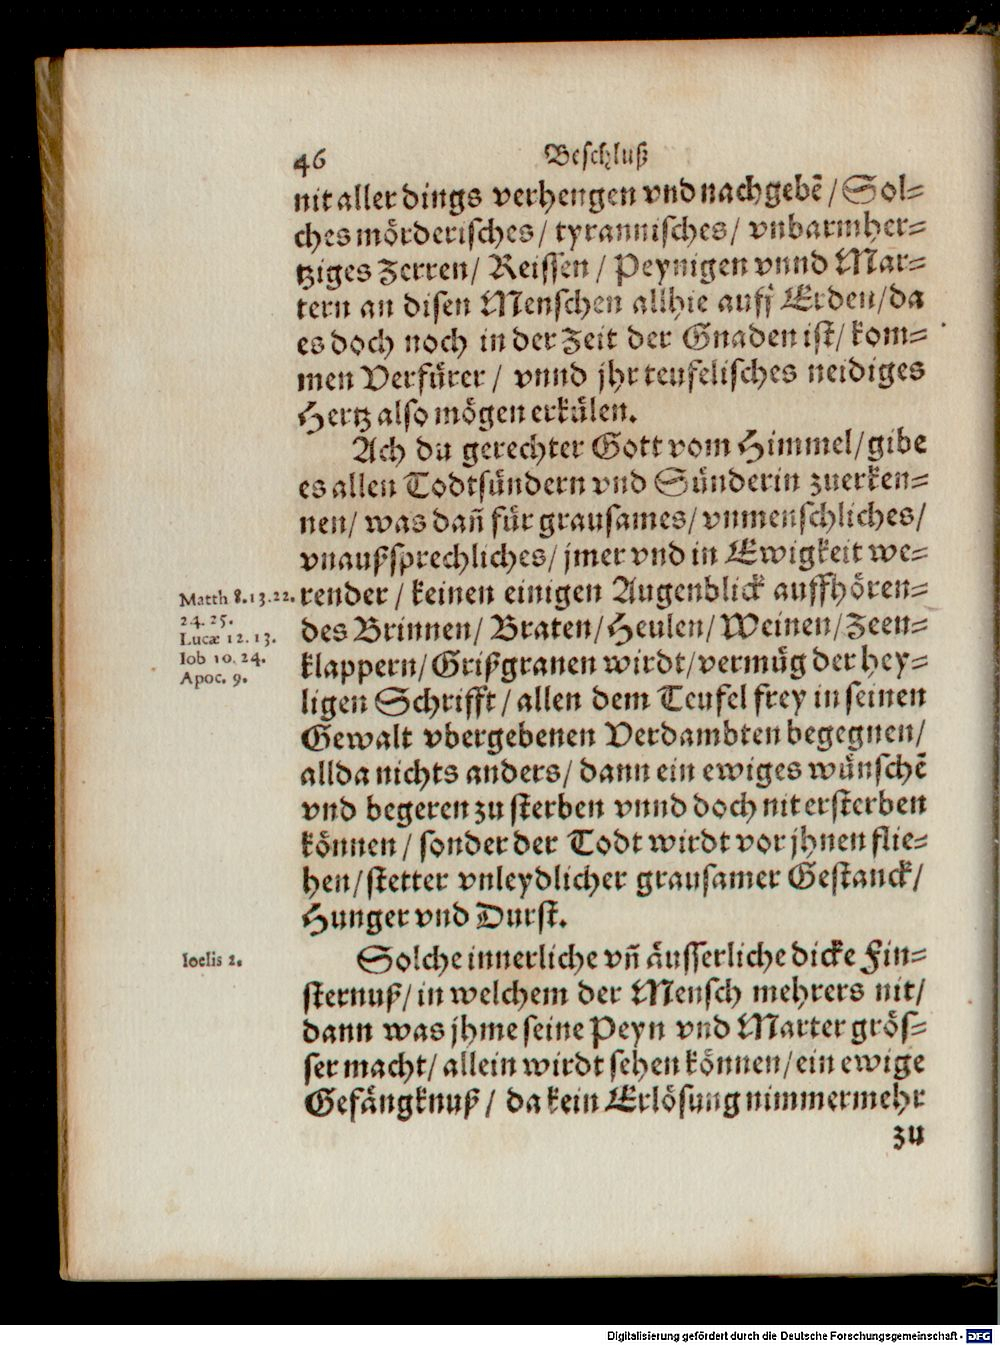 46 Beschluß
nit aller dings verhengen vnd nachgebē / Sol-
ches mörderisches / tyrannisches / vnbarmher-
tziges Zerren / Reissen / Peynigen vnnd Mar-
tern an disen Menschen allhie auff Erden / da
es doch noch in der Zeit der Gnaden ist / kom-
men Verfürer / vnnd jhr teufelisches neidiges
Hertz also mögen erkülen.
Ach du gerechter Gott vom Himmel / gibe
es allen Todtsündern vnd Sünderin zuerken-
nen / was dañ für grausames / vnmenschliches /
vnaußsprechliches / jmer vnd in Ewigkeit we-
Matth 8.13.22. render / keinen einigen Augenblick auffhören-
24.25.
des Brinnen / Braten / Heulen / Weinen / Zeen-
Lucæ 12.13.
Iob 10.24. klappern / Grißgranen wirdt / vermüg der hey-
Apoc. 9.
ligen Schrifft / allen dem Teufel frey in seinen
Gewalt vbergebenen Verdambten begegnen /
allda nichts anders / dann ein ewiges wünschē
vnd begeren zu sterben vnnd doch nit ersterben
können / sonder der Todt wirdt vor jhnen flie-
hen / stetter vnleydlicher grausamer Gestanck /
Hunger vnd Durst.
Ioelis 2. Solche innerliche vñ äusserliche dicke Fin-
sternuß / in welchem der Mensch mehrers nit /
dann was jhme seine Peyn vnd Marter grös-
ser macht / allein wirdt sehen können / ein ewige
Gefängknuß / da kein Erlösung nimmermehr
zu
Digitalisierung gefördert durch die Deutsche Forschungsgemeinschaft - DFG